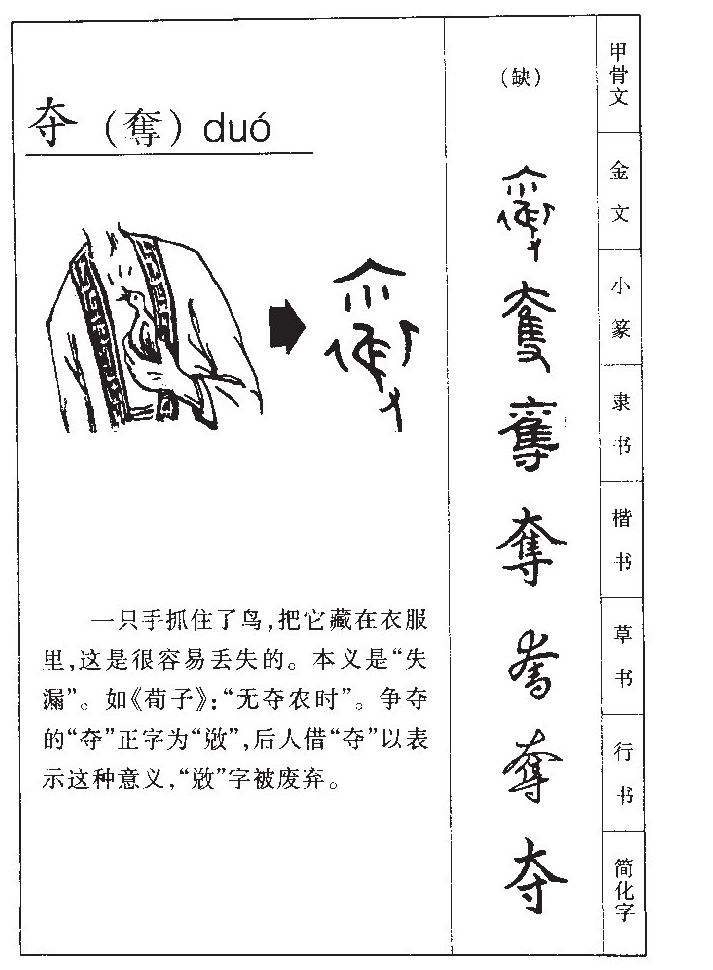 夺（奪）duó
一只手抓住了鸟，把它藏在衣服
里，这是很容易丢失的。本义是“失
漏”。如《荀子》：“无夺农时”。争夺
的“夺”正字为“敚”，后人借“夺”以表
示这种意义，“敚”字被废弃。
（缺）
甲骨文
金文
小篆
奪
隶书
奪
楷书
奪
草书
行书
奪
简化字
夺